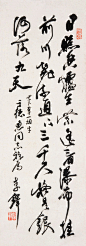 日照香爐生紫煙遥看瀑布挂
前川飛流直下三千尺疑是銀
河落九天
同志 李鐸